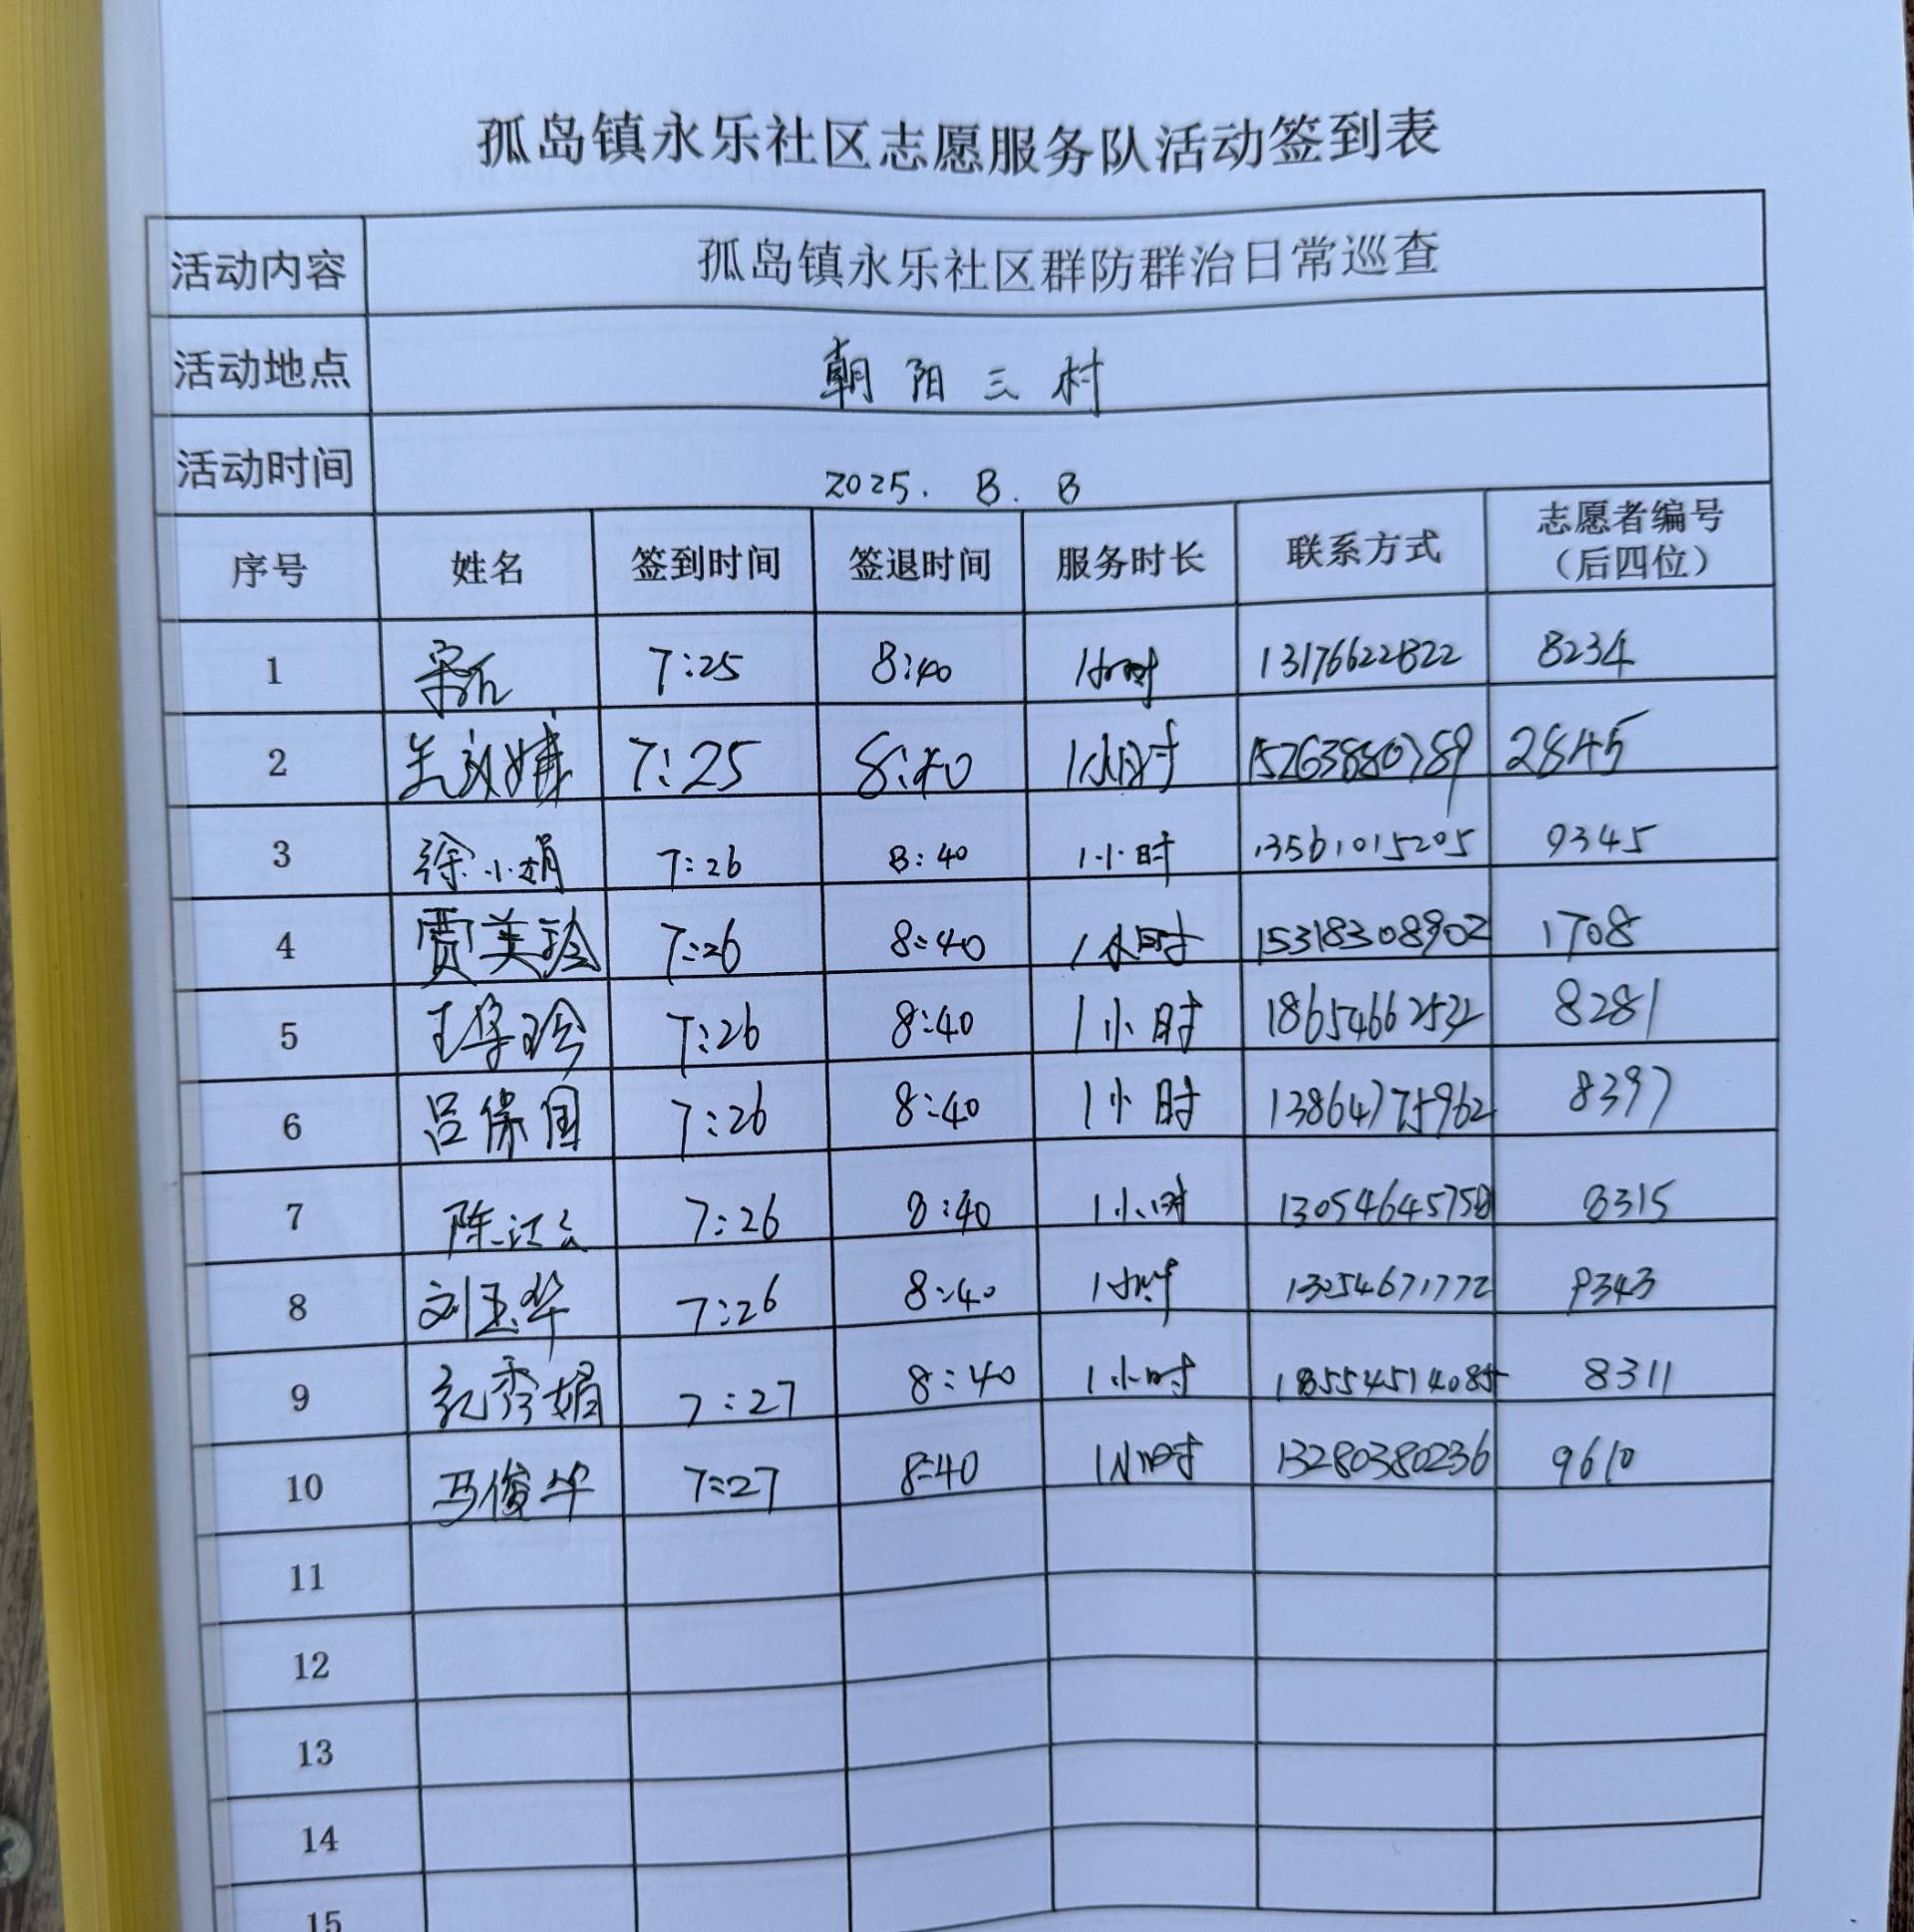 孤岛镇永乐社区志愿服务队活动签到表
活动内容 孤岛镇永乐社区群防群治日常巡查
活动地点 朝阳三村
活动时间 2025. 8. 8
序号 姓名 签到时间 签退时间 服务时长 联系方式 志愿者编号
（后四位）
1 7:25 8:40 1小时 13176622822 8234
2 7:25 8:40 1小时 15263880789 2845
3 徐小娟 7:26 8:40 1小时 13561015205 9345
4 贾美玲 7:26 8:40 1小时 15318308902 1708
5 7:26 8:40 1小时 8281
6 吕保国 7:26 8:40 1小时 13864775962 8397
7 7:26 8:40 1小时 13054645758 8315
8 刘玉华 7:26 8:40 1小时 13254671772 9343
9 纪秀娟 7:27 8:40 1小时 18554514085 8311
10 马俊华 7:27 8:40 1小时 13280380236 9610
11
12
13
14
15